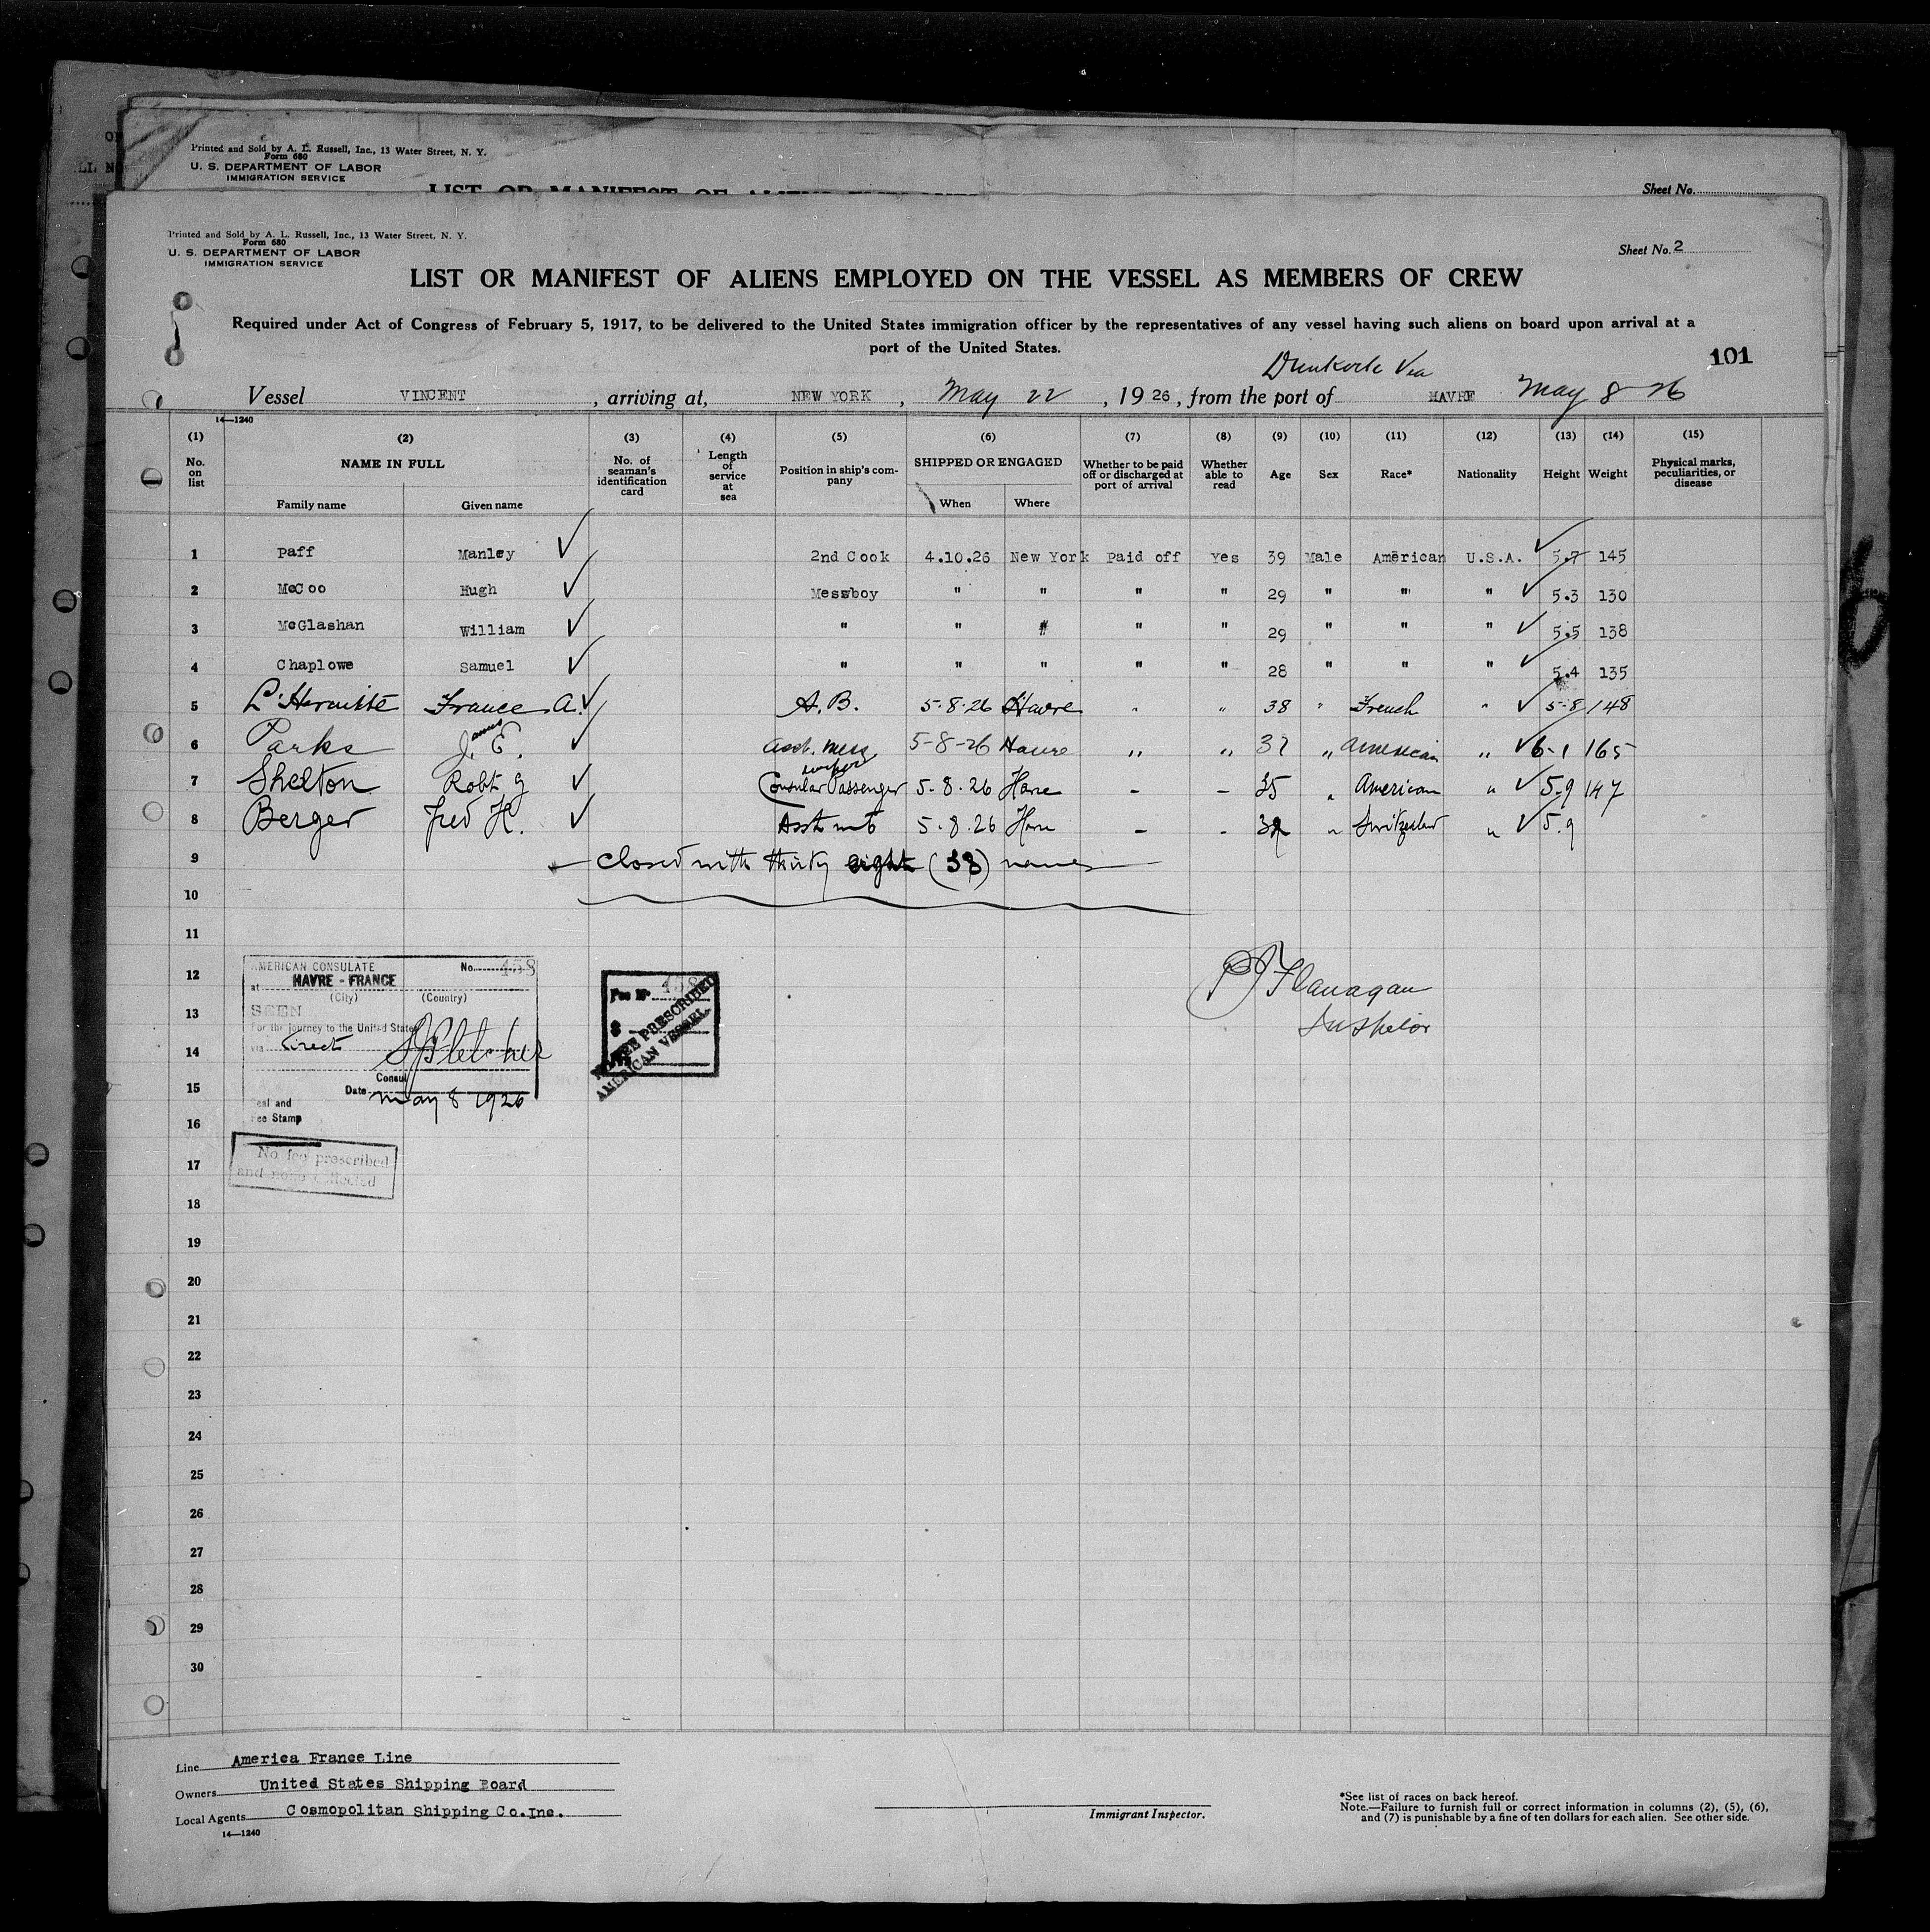 Printed and Sold by A. L. Russell, Inc., 13 Water Street, N. Y.
Form 680
U. S. DEPARTMENT OF LABOR
IMMIGRATION SERVICE
Sheet No.
Printed and Sold by A. L. Russell, Inc., 13 Water Street, N. Y.
Form 680
U. S. DEPARTMENT OF LABOR
IMMIGRATION SERVICE
Sheet No. 2
LIST OR MANIFEST OF ALIENS EMPLOYED ON THE VESSEL AS MEMBERS OF CREW
Required under Act of Congress of February 5, 1917, to be delivered to the United States immigration officer by the representatives of any vessel having such aliens on board upon arrival at a
port of the United States.
101
Via
Vessel VINCENT, arriving at, NEW YORK, May 22, 1926, from the port of HAVRE May 8-26
14—1240
(1) (2) (3) (4) (5) (6) (7) (8) (9) (10) (11) (12) (13) (14) (15)
No. on list NAME IN FULL No. of seaman's identification card Length of service at sea Position in ship's company SHIPPED OR ENGAGED Whether to be paid off or discharged at port of arrival Whether able to read Age Sex Race* Nationality Height Weight Physical marks, peculiarities, or disease
Family name Given name When Where
1 Paff Manley 2nd Cook 4.10.26 New York Paid off Yes 39 Male American U.S.A. 5.7 145
2 McCoo Hugh Messboy " " " " 29 " " " 5.3 130
3 McGlashan William " " " " " 29 " " " 5.5 138
4 Chaplowe Samuel " " " " " 28 " " " 5.4 135
5 A. A.B. 5-8-26 Havre " " 38 " French " 5-8 148
6 Parks James E. 5-8-26 Havre " " " American " 6-1 165
7 Shelton Robt G Consular Passenger 5-8-26 Havre - - 35 " American " 5-9 147
8 Berger Fred H. 5-8-26 Havre - - " Switzerland " 5.9
9 closed with thirty eight (38) names
10
11
12
13
14
15
16
17
18
19
20
21
22
23
24
25
26
27
28
29
30
AMERICAN CONSULATE No. 458
at HAVRE - FRANCE
(City) (Country)
SEEN
For the journey to the United States
via direct
Consul
Date May 8 1926
Seal and
Fee Stamp
Fee No. 458
$
NO FEE PRESCRIBED
AMERICAN VESSEL
No fee prescribed
and none collected
Flanagan
Inspector
Line America France Line
Owners United States Shipping Board
Local Agents Cosmopolitan Shipping Co.Inc.
14—1240
Immigrant Inspector.
*See list of races on back hereof.
Note.—Failure to furnish full or correct information in columns (2), (5), (6),
and (7) is punishable by a fine of ten dollars for each alien. See other side.